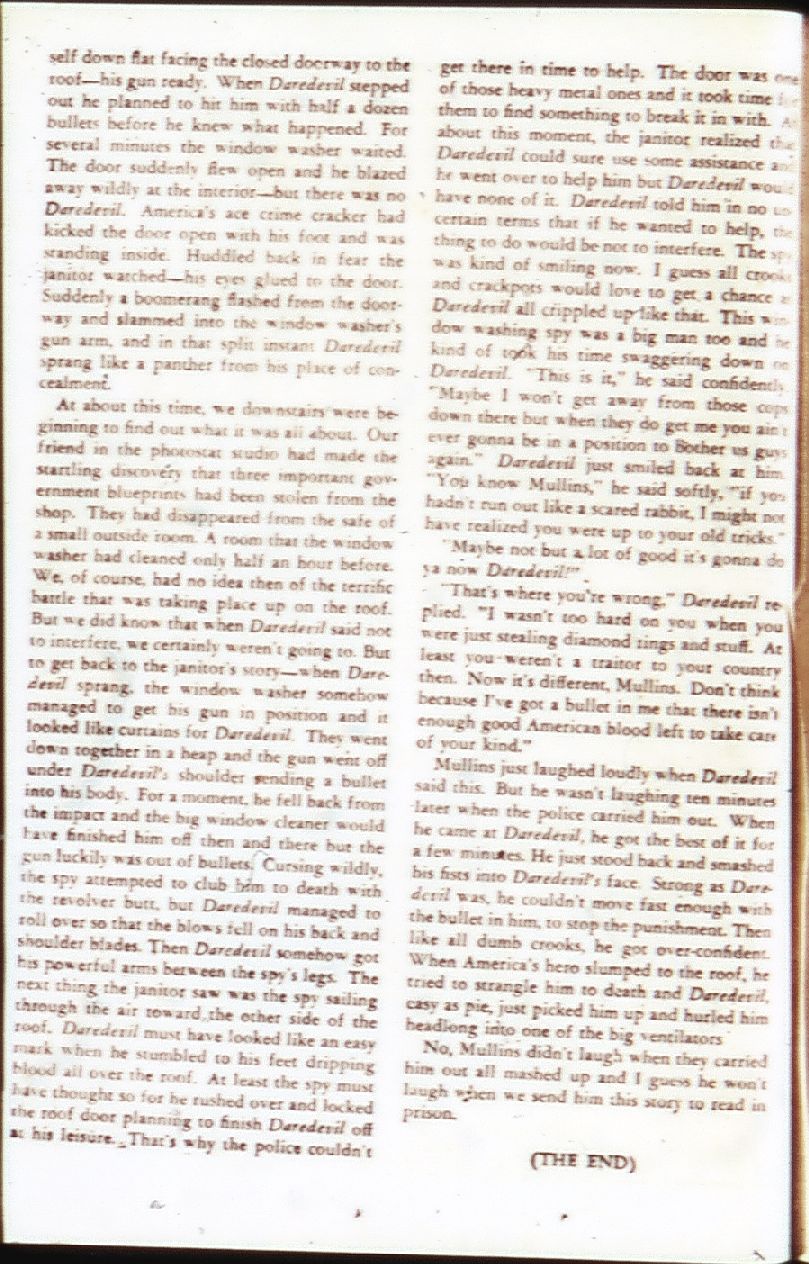 self down flat facing the closed doorway to the
roof—his gun ready. When Daredevil stepped
out he planned to hit him with half a dozen
bullets before he knew what happened. For
several minutes the window washer waited.
The door suddenly flew open and he blazed
away wildly at the interior—but there was no
Daredevil. America's ace crime cracker had
kicked the door open with his foot and was
standing inside. Huddled back in fear the
janitor watched—his eyes glued to the door.
Suddenly a boomerang flashed from the door-
way and slammed into the window washer's
gun arm, and in that split instant Daredevil
sprang like a panther from his place of con-
cealment.
At about this time, we downstairs were be-
ginning to find out what it was all about. Our
friend in the photostat studio had made the
startling discovery that three important gov-
ernment blueprints had been stolen from the
shop. They had disappeared from the safe of
a small outside room. A room that the window
washer had cleaned only half an hour before.
We, of course, had no idea then of the terrific
battle that was taking place up on the roof.
But we did know that when Daredevil said not
to interfere, we certainly weren't going to. But
to get back to the janitor's story—when Dare-
devil sprang, the window washer somehow
managed to get his gun in position and it
looked like curtains for Daredevil. They went
down together in a heap and the gun went off
under Daredevil's shoulder sending a bullet
into his body. For a moment, he fell back from
the impact and the big window cleaner would
have finished him off then and there but the
gun luckily was out of bullets. Cursing wildly,
the spy attempted to club him to death with
the revolver butt, but Daredevil managed to
roll over so that the blows fell on his back and
shoulder blades. Then Daredevil somehow got
his powerful arms between the spy's legs. The
next thing the janitor saw was the spy sailing
through the air toward the other side of the
roof. Daredevil must have looked like an easy
mark when he stumbled to his feet dripping
blood all over the roof. At least the spy must
have thought so for he rushed over and locked
the roof door planning to finish Daredevil off
at his leisure. That's why the police couldn't
get there in time to help. The door was one
of those heavy metal ones and it took time
them to find something to break it in with.
about this moment, the janitor realized
Daredevil could sure use some assistance
he went over to help him but Daredevil
have none of it. Daredevil told him in no
certain terms that if he wanted to help,
thing to do would be not to interfere. The
was kind of smiling now. I guess all
and crackpots would love to get a chance
Daredevil all crippled up like that. This
dow washing spy was a big man too and he
kind of took his time swaggering down
Daredevil. "This is it," he said confidently.
"Maybe I won't get away from those cops
down there but when they do get me you ain't
ever gonna be in a position to bother us guys
again." Daredevil just smiled back at him.
"You know Mullins," he said softly, "if you
hadn't run out like a scared rabbit, I might not
have realized you were up to your old tricks."
"Maybe not but a lot of good it's gonna do
ya now Daredevil!"
"That's where you're wrong," Daredevil re-
plied. "I wasn't too hard on you when you
were just stealing diamond rings and stuff. At
least you weren't a traitor to your country
then. Now it's different, Mullins. Don't think
because I've got a bullet in me that there isn't
enough good American blood left to take care
of your kind."
Mullins just laughed loudly when Daredevil
said this. But he wasn't laughing ten minutes
later when the police carried him out. When
he came at Daredevil, he got the best of it for
a few minutes. He just stood back and smashed
his fists into Daredevil's face. Strong as Dare-
devil was, he couldn't move fast enough with
the bullet in him, to stop the punishment. Then
like all dumb crooks, he got over-confident.
When America's hero slumped to the roof, he
tried to strangle him to death and Daredevil,
easy as pie, just picked him up and hurled him
headlong into one of the big ventilators
No, Mullins didn't laugh when they carried
him out all mashed up and I guess he won't
laugh when we send him this story to read in
prison.
(THE END)